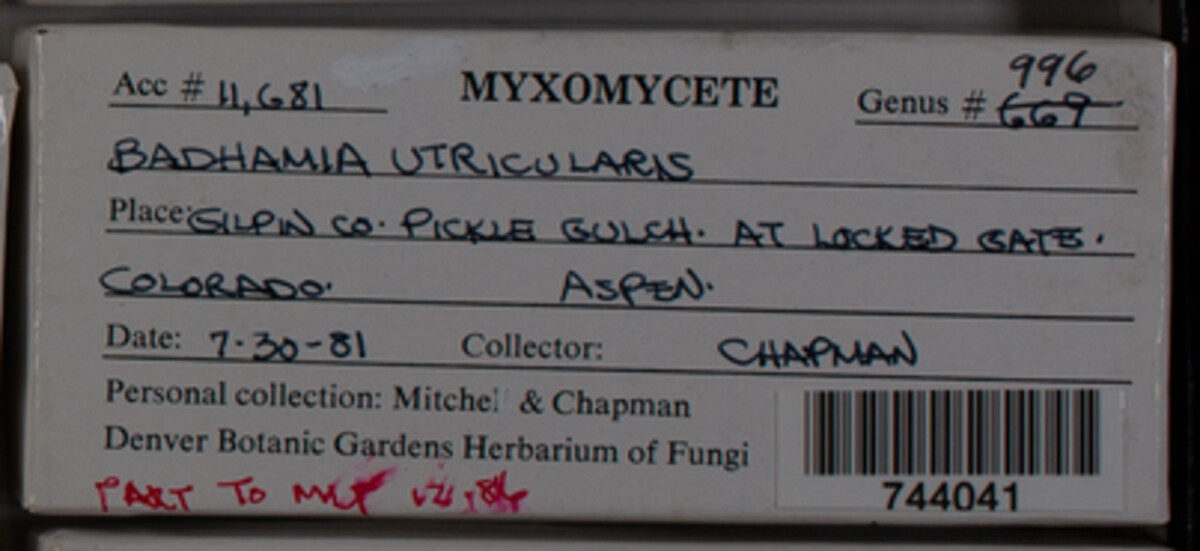 Acc # 11,681 MYXOMYCETE Genus # 996
669
BADHAMIA UTRICULARIS
Place: GILPIN CO. PICKLE GULCH. AT LOCKED GATE.
COLORADO. ASPEN.
Date: 7-30-81 Collector: CHAPMAN
Personal collection: Mitchel & Chapman
Denver Botanic Gardens Herbarium of Fungi
PART TO
744041